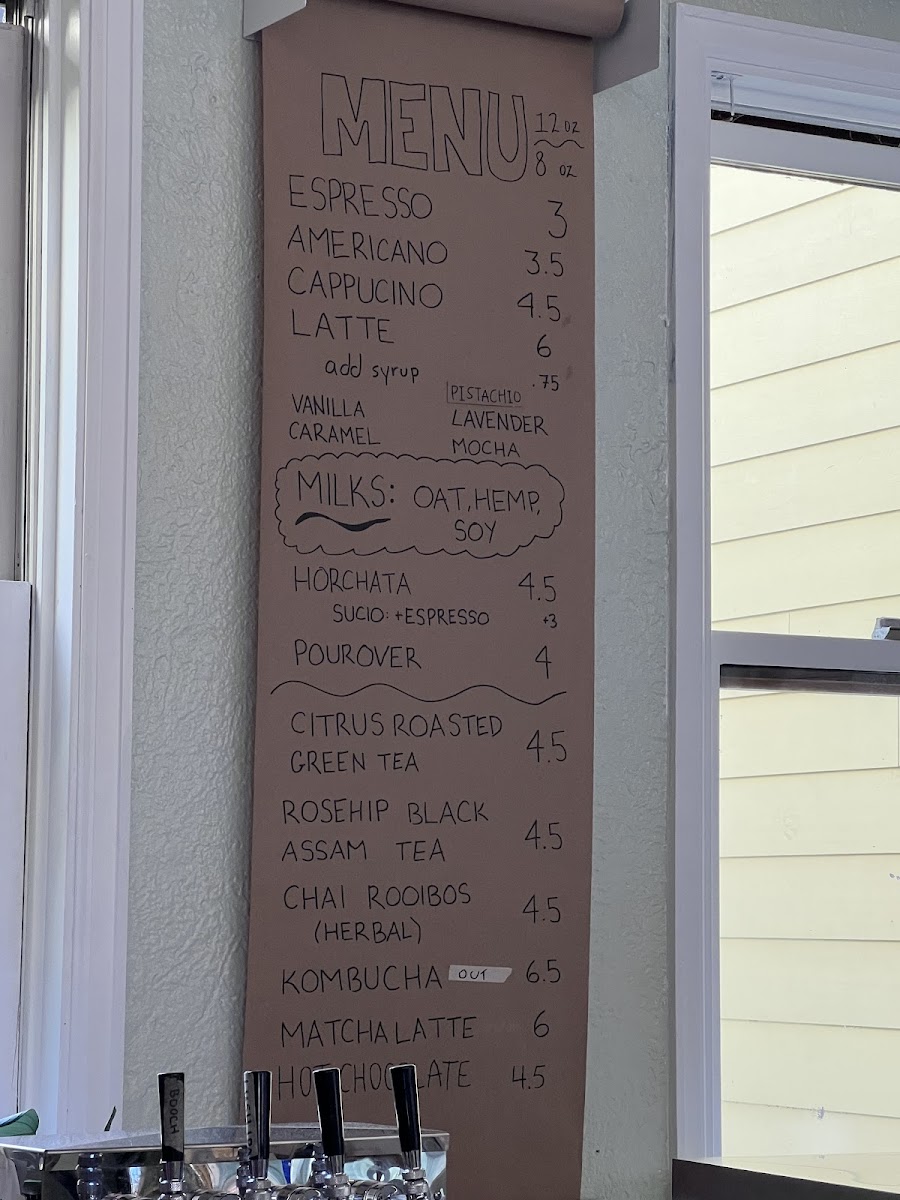 MENU 12 oz
8 oz
ESPRESSO 3
AMERICANO 3.5
CAPPUCINO 4.5
LATTE 6
add syrup .75
PISTACHIO
VANILLA LAVENDER
CARAMEL MOCHA
MILKS: OAT, HEMP,
SOY
HORCHATA 4.5
SUCIO: +ESPRESSO +3
POUROVER 4
CITRUS ROASTED
GREEN TEA 4.5
ROSEHIP BLACK
ASSAM TEA 4.5
CHAI ROOIBOS
(HERBAL) 4.5
KOMBUCHA OUT 6.5
MATCHA LATTE 6
HOT CHOCOLATE 4.5
BOOCH